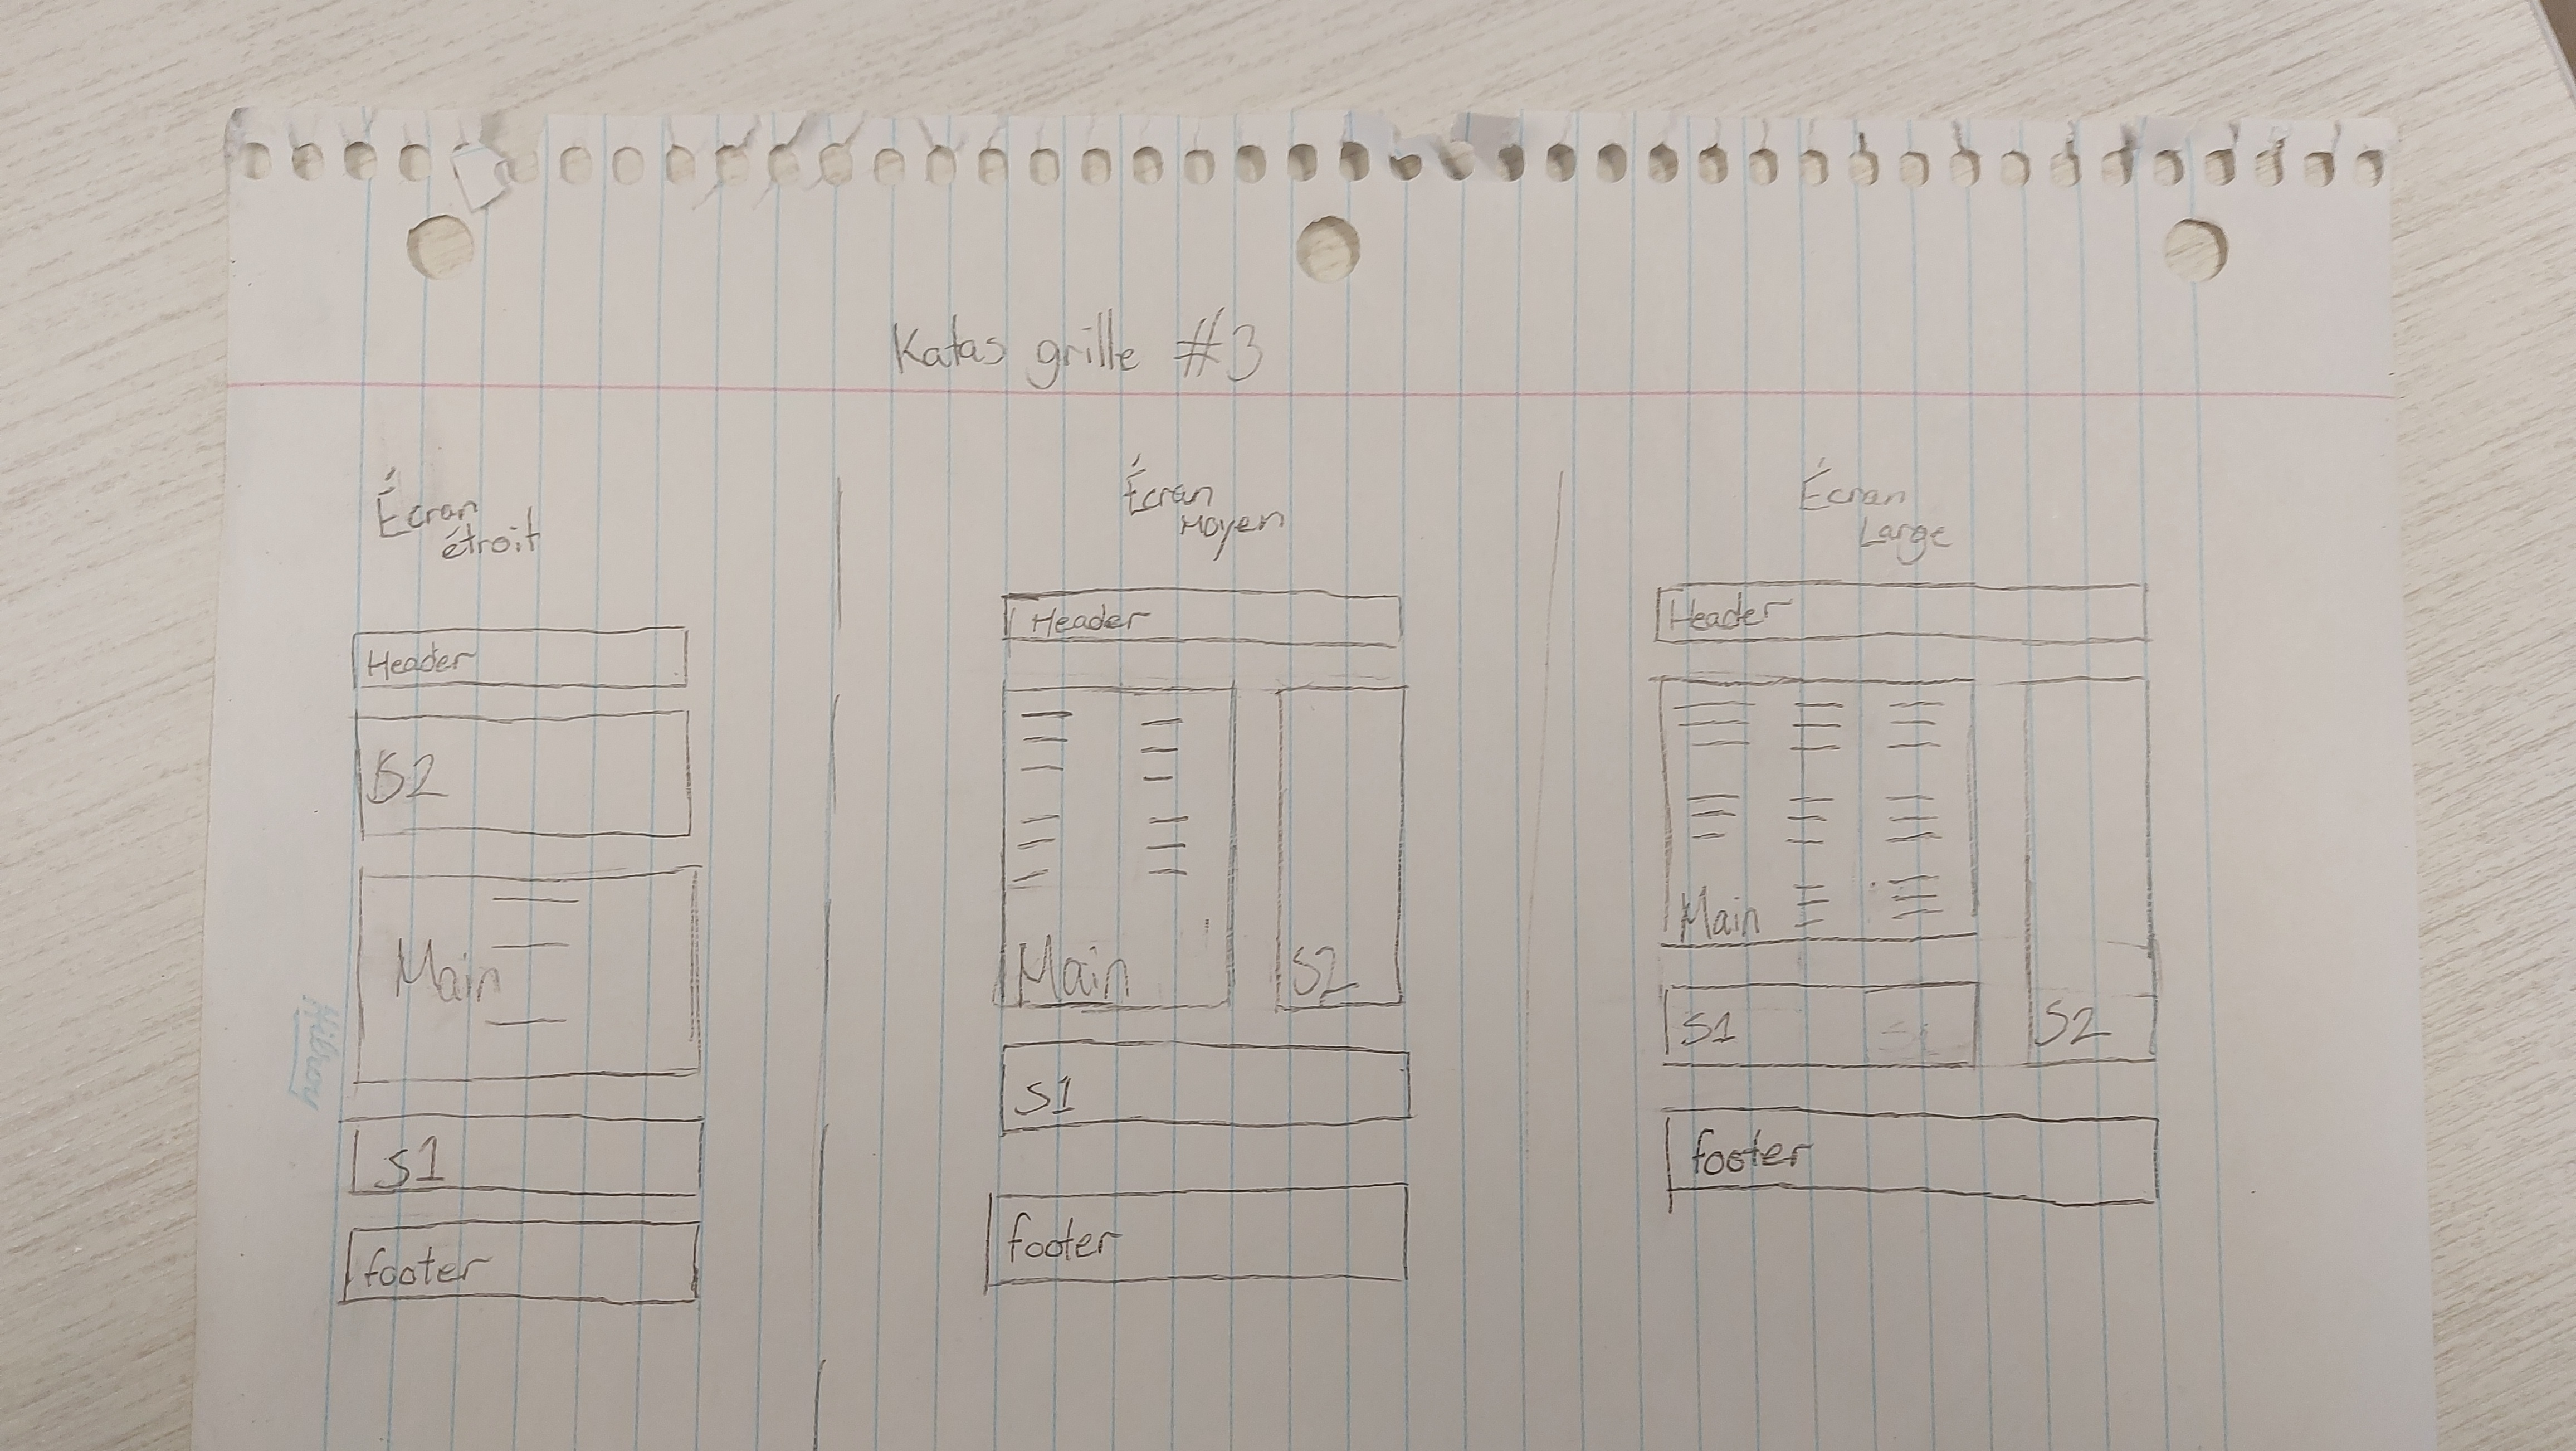 Katas grille #3
Écran
étroit
Header
S2
Main
S1
footer
Écran
Moyen
Header
Main
S2
S1
footer
Écran
Large
Header
Main
S1
S2
footer
Hilroy